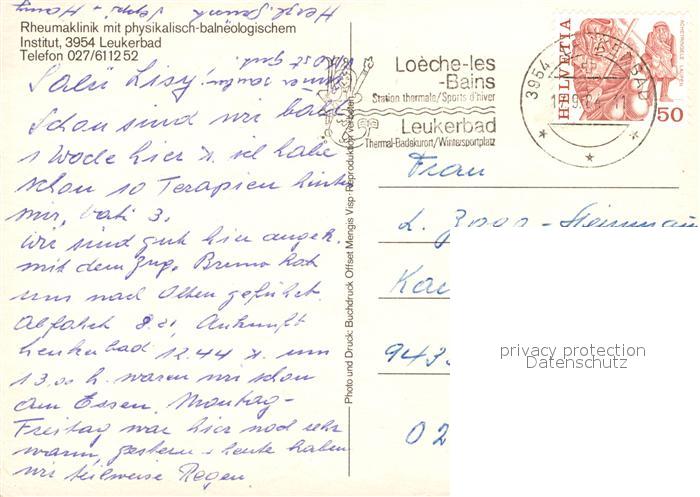 Rheumaklinik mit physikalisch-balneologischem
Institut, 3954 Leukerbad
Telefon 027/61 12 52
Salü Lisy!
Schon sind wir bald
1 Woche hier & ich habe
schon 10 Terapien hinter
mir, Vati 3.
Wir sind gut hier angek.
mit dem Zug. Bruno hat
uns nach Olten geführt.
Abfahrt 8.01, Ankunft
Leukerbad 12.44 & um
13.00 h. waren wir schon
am Essen. Montag-
Freitag war hier noch sehr
warm, gestern & heute haben
wir teilweise Regen.
Photo und Druck: Buchdruck Offset Mengis Visp - Reproduktion verboten
Loèche-les
-Bains
Station thermale/Sports d'hiver
Leukerbad
Thermal-Badekurort/Wintersportplatz
3954 LEUKERBAD
HELVETIA
50
Frau
L.
943
02
privacy protection
Datenschutz